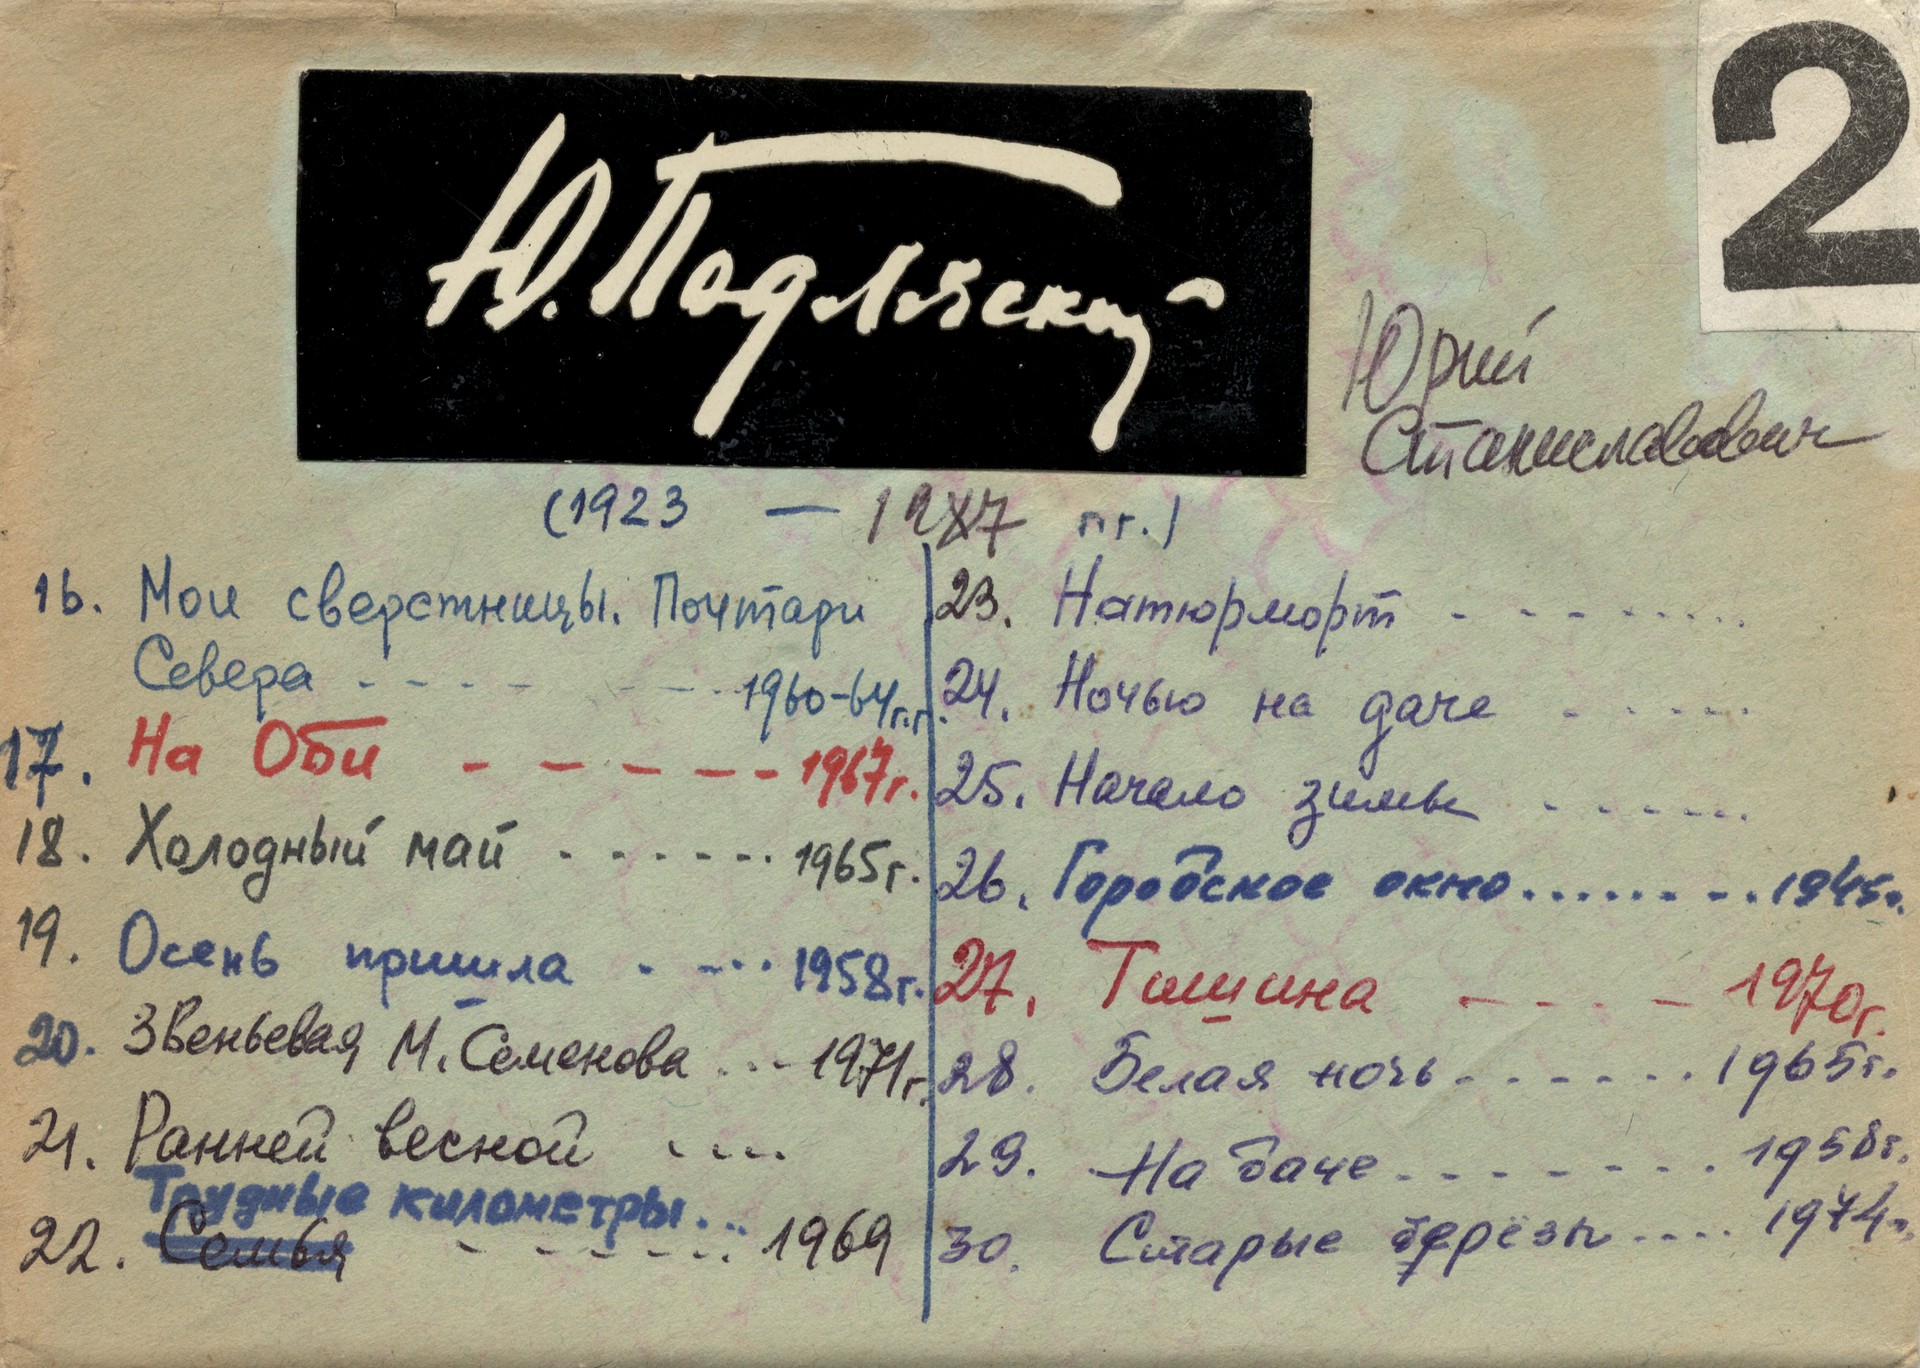 2
Ю. Подляский
Юрий
Станиславович
(1923 — 1987 гг.)
16. Мои сверстницы. Почтари
Севера - - - - - - - 1960-64г.г.
17. На Оби - - - - - - 1967г.
18. Холодный май - - - - - - 1965г.
19. Осень пришла - - - - 1958г.
20. Звеньевая М. Семенова ... - 1971г.
21. Ранней весной ....
Трудные километры...
22. Семья - - - - - - 1969
23. Натюрморт - - - - - - - -
24. Ночью на даче - - - - -
25. Начало зимы - - - - - -
26. Городское окно......... 1945г.
27. Тишина - - - - 1970г.
28. Белая ночь - - - - - - 1965г.
29. На даче - - - - - - - - 1958г.
30. Старые берёзы..... 1974г.